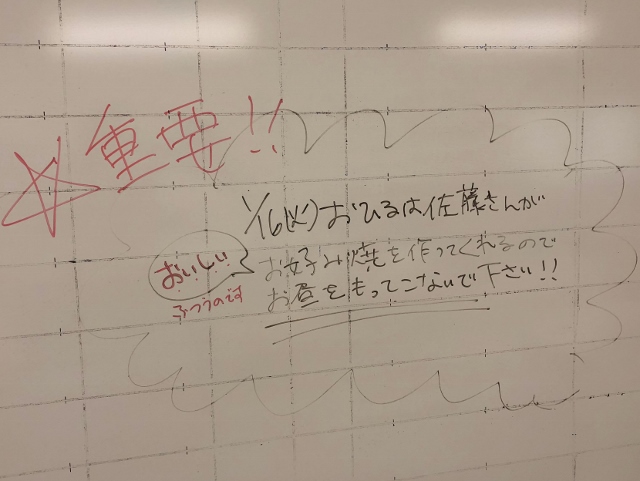 ☆重要!!
1/16(火)おひるは佐藤さんが
お好み焼を作ってくれるので
お昼をもってこないで下さい!!
おいしい
ふつうのです